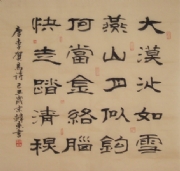 大漠沙如雪
燕山月似鈎
何當金絡腦
快走踏清秋
唐李賀馬詩